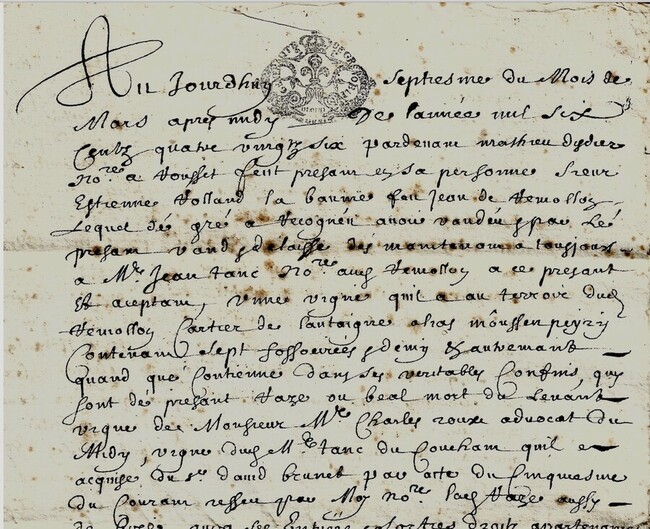 Au Jourdhuy Septiesme du Mois de
Mars apres midy De lannee mil six
Centz quatre vingtz six pardevant Mathieu didier
No.re a Rousset feut present en sa personne sieur
Estienne Rolland la baume feu Jean de Remollon
Lequel de gré a Recogneu avoir vandeu par Le
presant vand & delaisse dés maintenant a tousjours
a M.e Jean tanc No.re aud Remollon a ce presant
Et aceptant, une vigne quil a au terroir dud
Remollon Cartier de lautaigne alias
Contenant Sept fossoirées & demy & autremant
quand que Contienne dans ses veritables Confins, quy
sont dé presant Raze ou beal mort du Levant
vigne de Monsieur M.e Charles roux advocat du
Midy, vigne dud M.e tanc du Couchant quil a
acquise du s.r david brunet par acte du Cinquiesme
du Courant ressu par Moy No.re Raze aussy
de avec ses Entrées sorties droitz apartenances